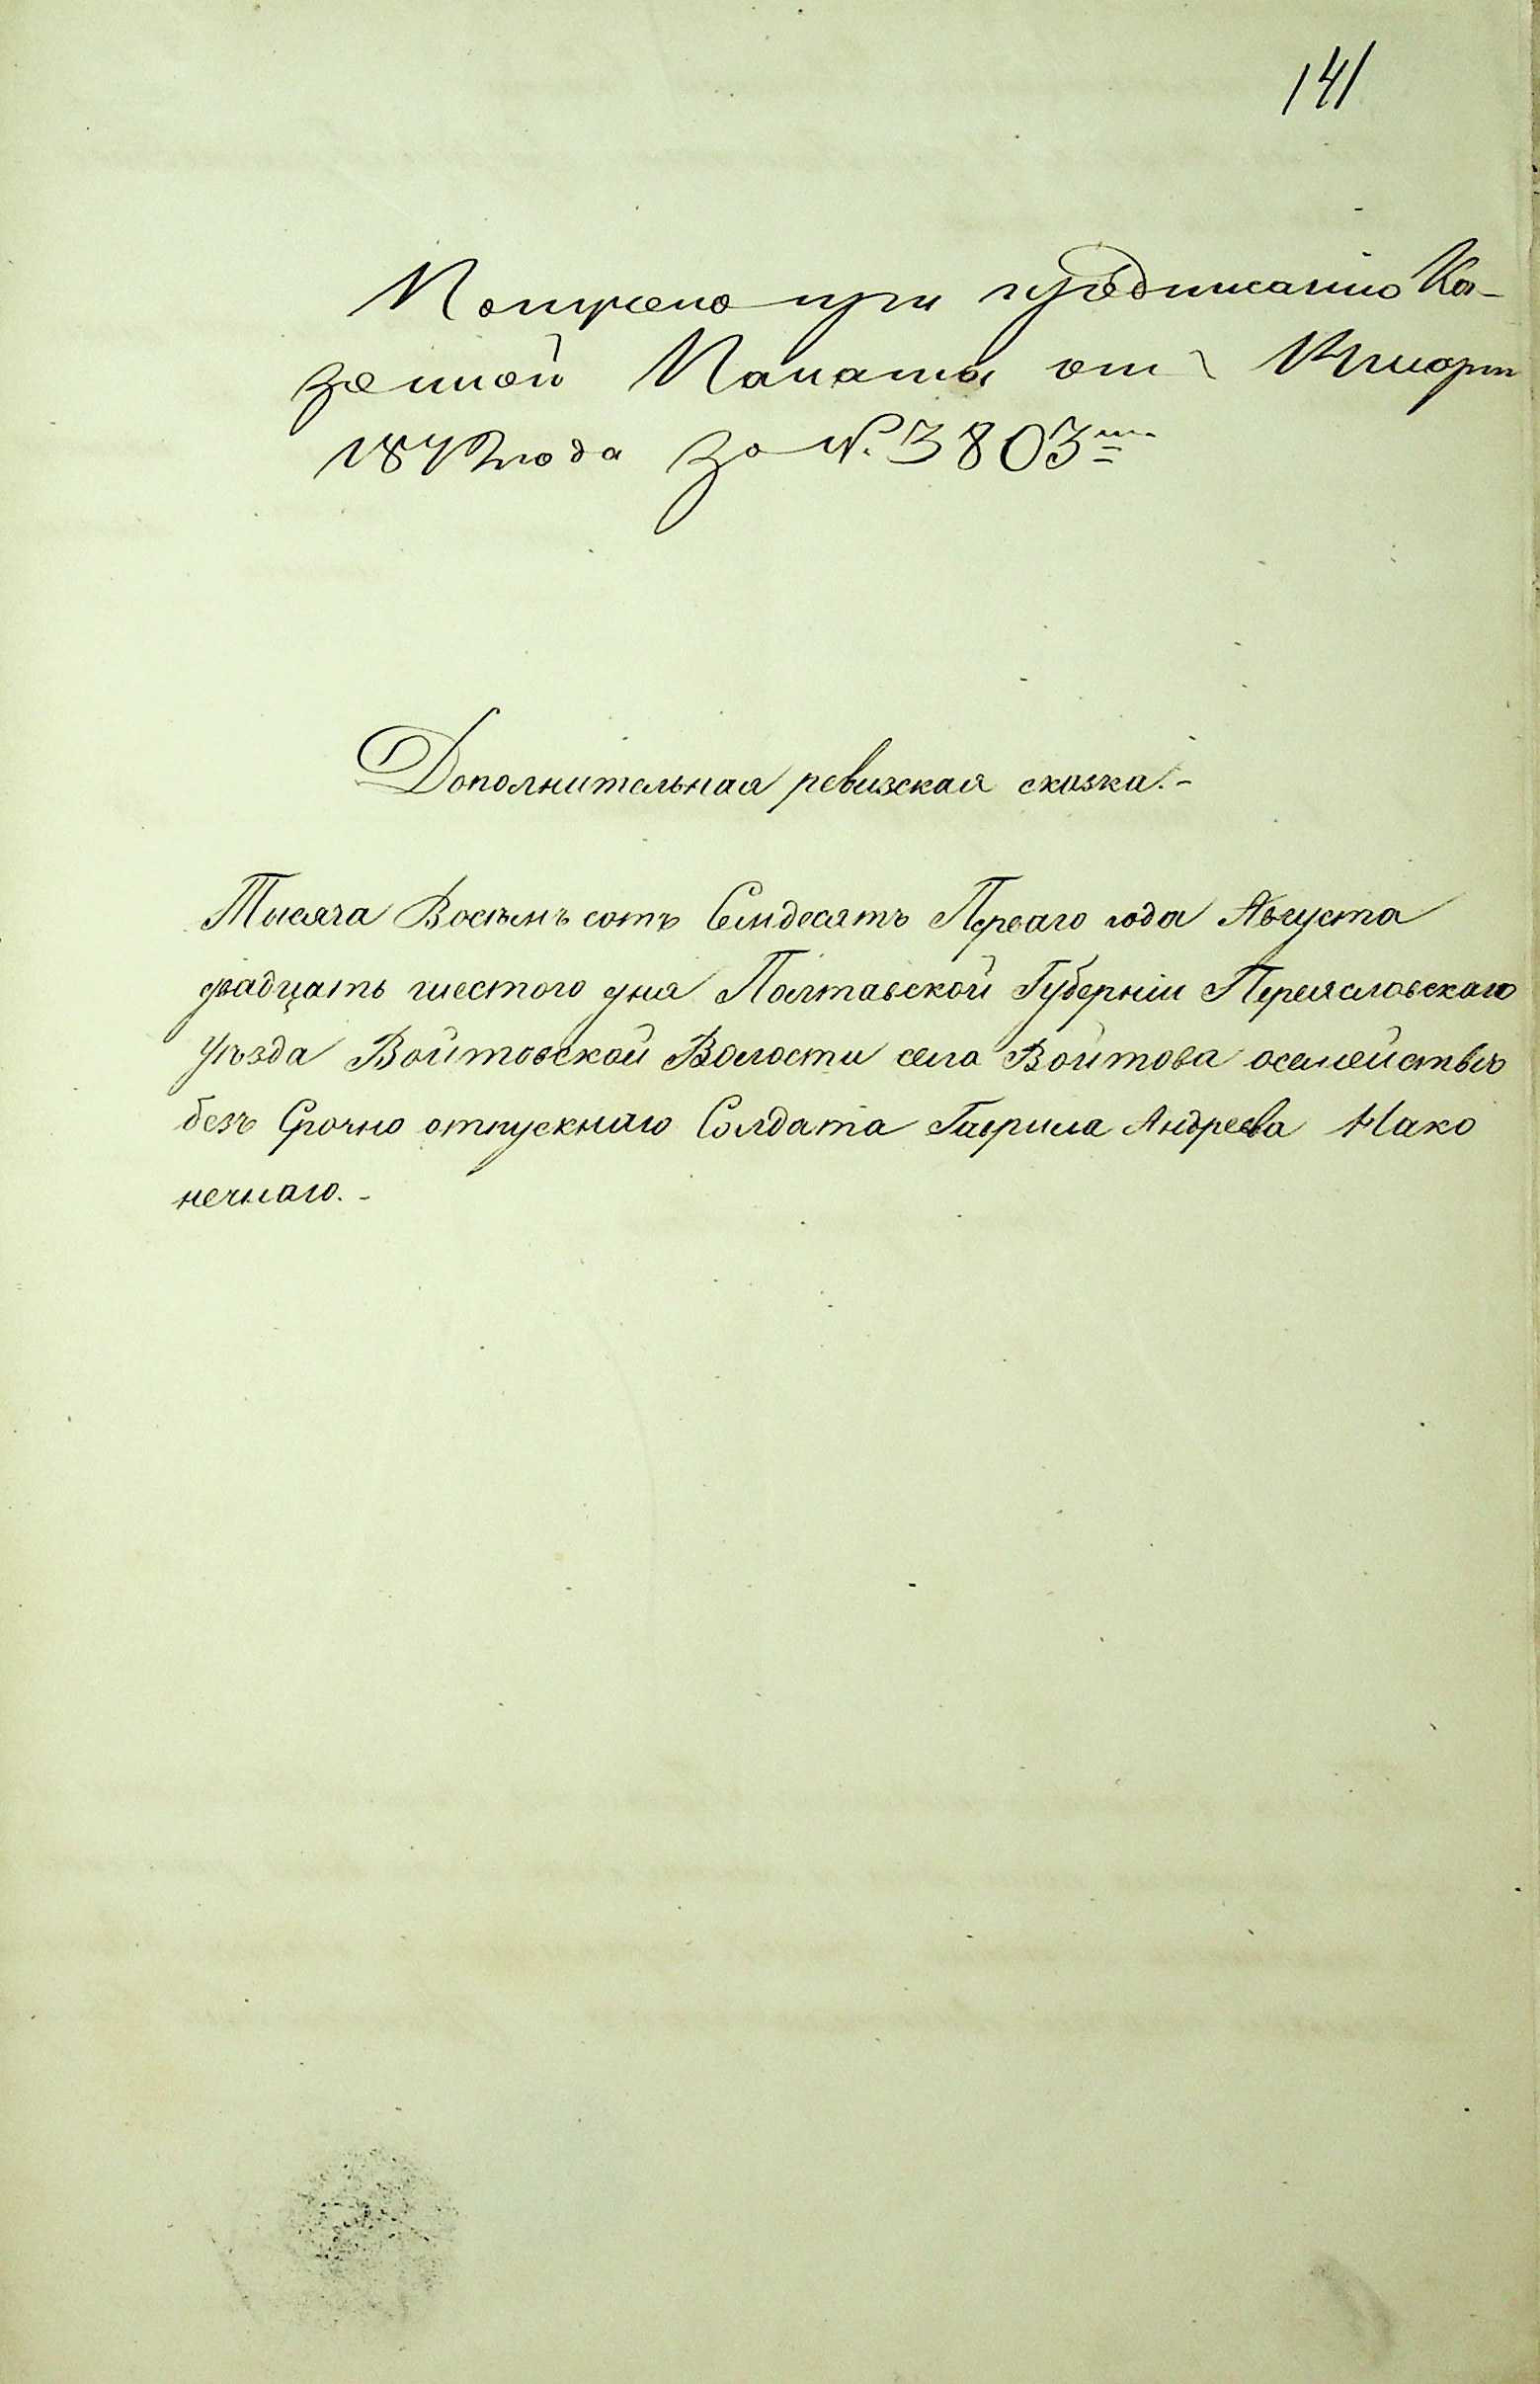 141
Получено при предписанію Ка-
зенной Палаты отъ Марта
1872 года за №. 3803
Дополнительная ревизская сказка.-
Тысяча Восемь сотъ Семдесятъ Перваго года Августа
двадцать шестого дня Полтавской Губерніи Переяславскаго
уѣзда Войтовской Волости села Войтова осемействѣ
безъ Срочно отпускнаго Солдата Гаврила Андреева Нако
нечнаго.-